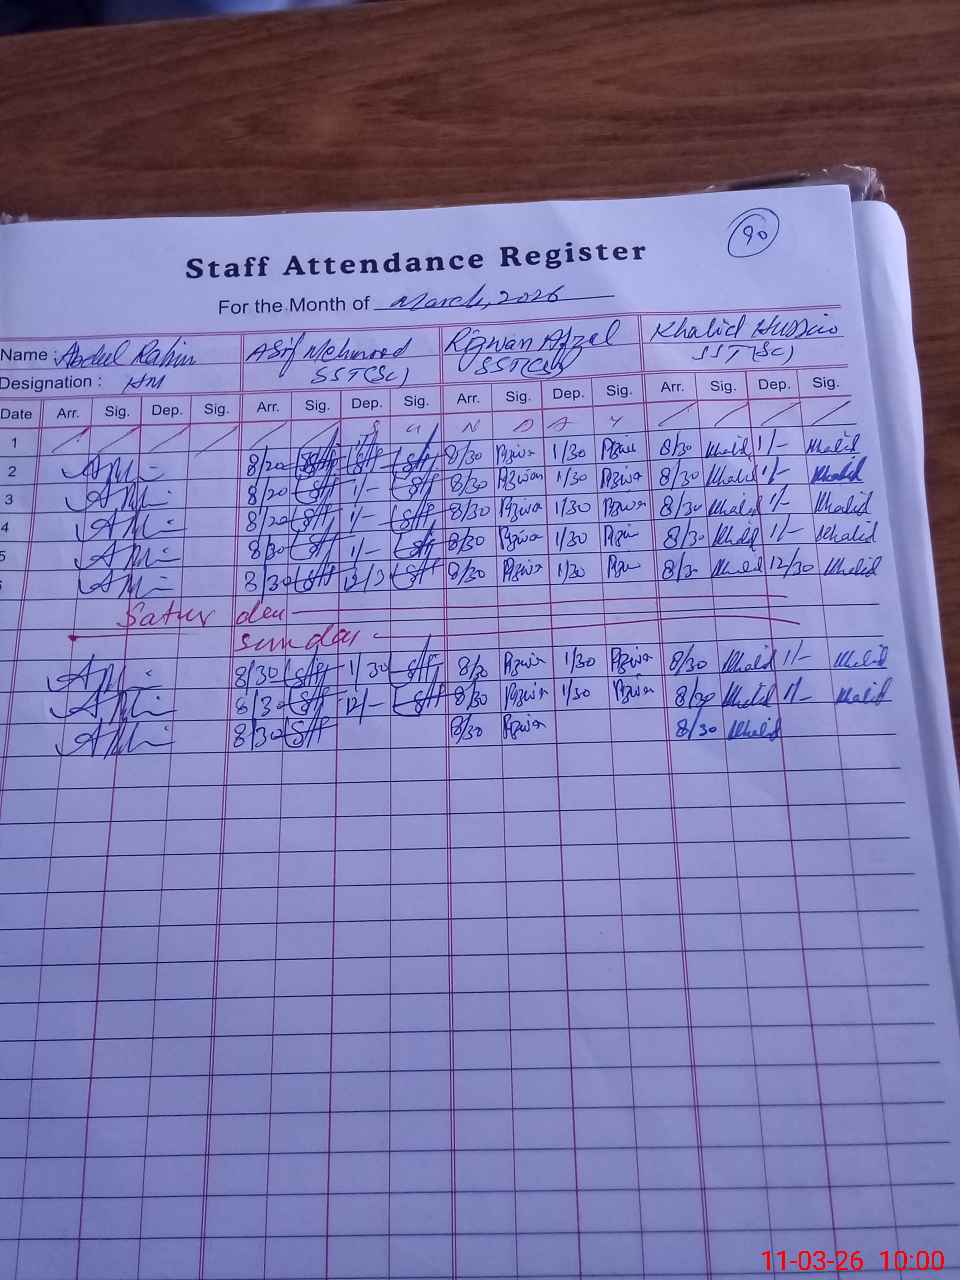 90
Staff Attendance Register
For the Month of March, 2026
Name : Abdul Rahim Asif Mehmood Rizwan Afzal Khalid Hussain
Designation : HM SST(Sc) SST(Sc) SST(Sc)
Date Arr. Sig. Dep. Sig. Arr. Sig. Dep. Sig. Arr. Sig. Dep. Sig. Arr. Sig. Dep. Sig.
1 S U N D A Y
2 8/20 8/30 Rizwan 1/30 Rizwan 8/30 Khalid 1/- Khalid
3 8/20 1/- 8/30 Rizwan 1/30 Rizwan 8/30 Khalid 1/- Khalid
4 8/20 1/- 8/30 Rizwan 1/30 Rizwan 8/30 Khalid 1/- Khalid
5 8/30 1/- 8/30 Rizwan 1/30 Rizwan 8/30 Khalid 1/- Khalid
8/30 8/30 Rizwan 1/30 Rizwan 8/30 Khalid 12/30 Khalid
Satur day
sunday
8/30 1/30 8/30 Rizwan 1/30 Rizwan 8/30 Khalid 1/- Khalid
8/30 12/- 8/30 Rizwan 1/30 Rizwan 8/30 Khalid 1/- Khalid
8/30 8/30 Rizwan 8/30 Khalid
11-03-26 10:00